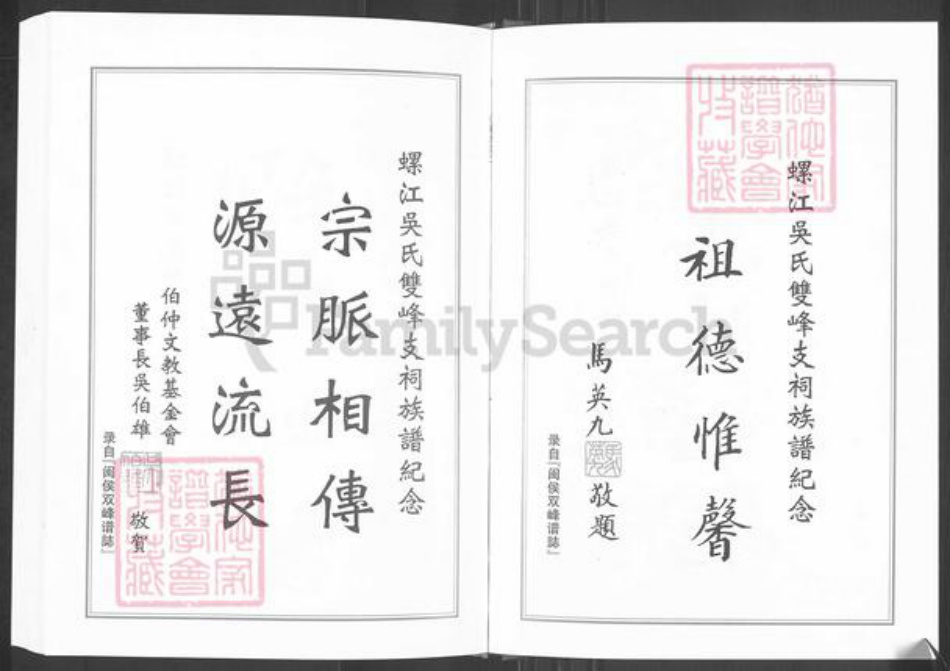 螺江吳氏雙峰支祠族譜紀念
祖德惟馨
馬英九 敬題
录自『闽侯双峰谱誌』
螺江吳氏雙峰支祠族譜紀念
宗脈相傳
源遠流長
伯仲文教基金會
董事長吳伯雄 敬賀
录自『闽侯双峰谱誌』
FamilySearch